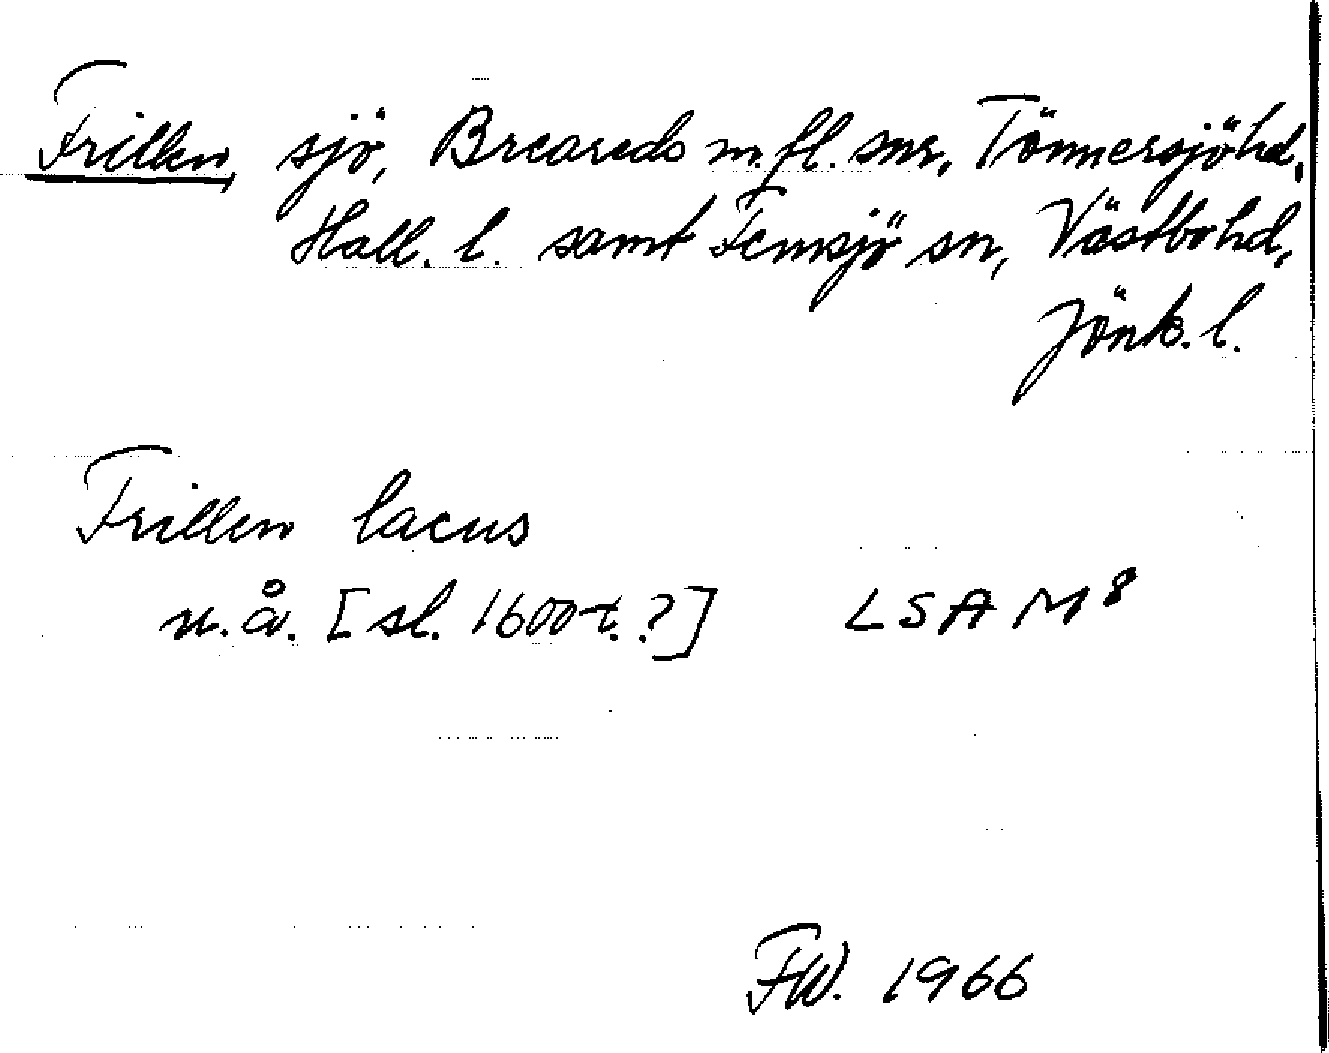 Frillen, sjö, Breareds m.fl. snr, Tönnersjöhd,
Hall. l. samt Femsjö sn, Västbohd,
Jönk. l.
Frillen lacus
u.å. [sl. 1600-t.?] LSAM⁸
FW. 1966